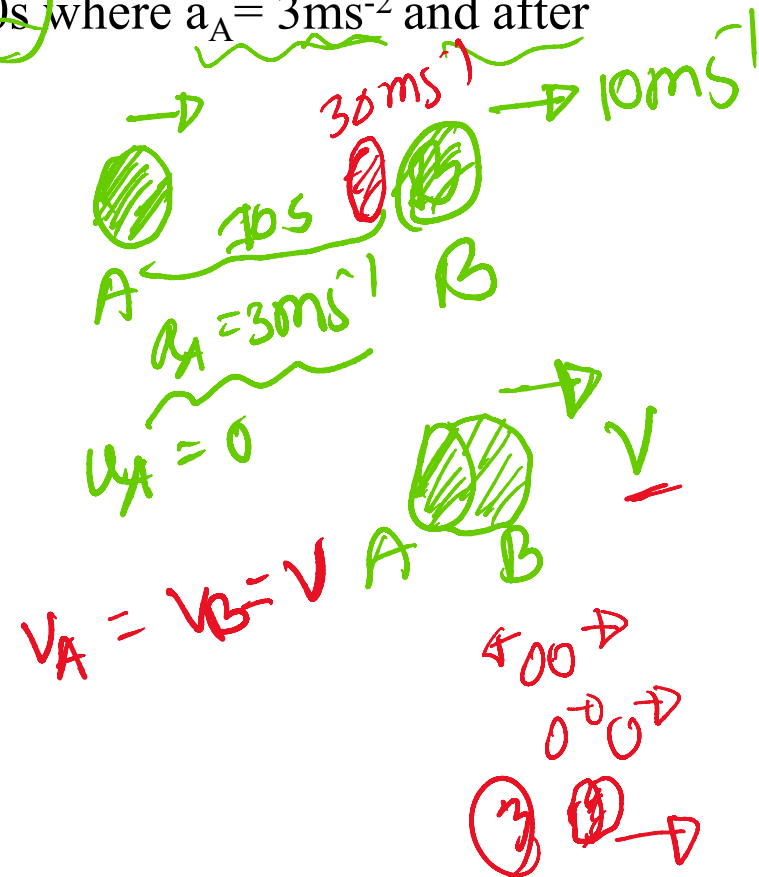 s where aA= 3ms-2 and after
30ms-1
10ms-1
B
10s
A
B
aA = 3ms-1
uA = 0
V
A B
VA = VB = V